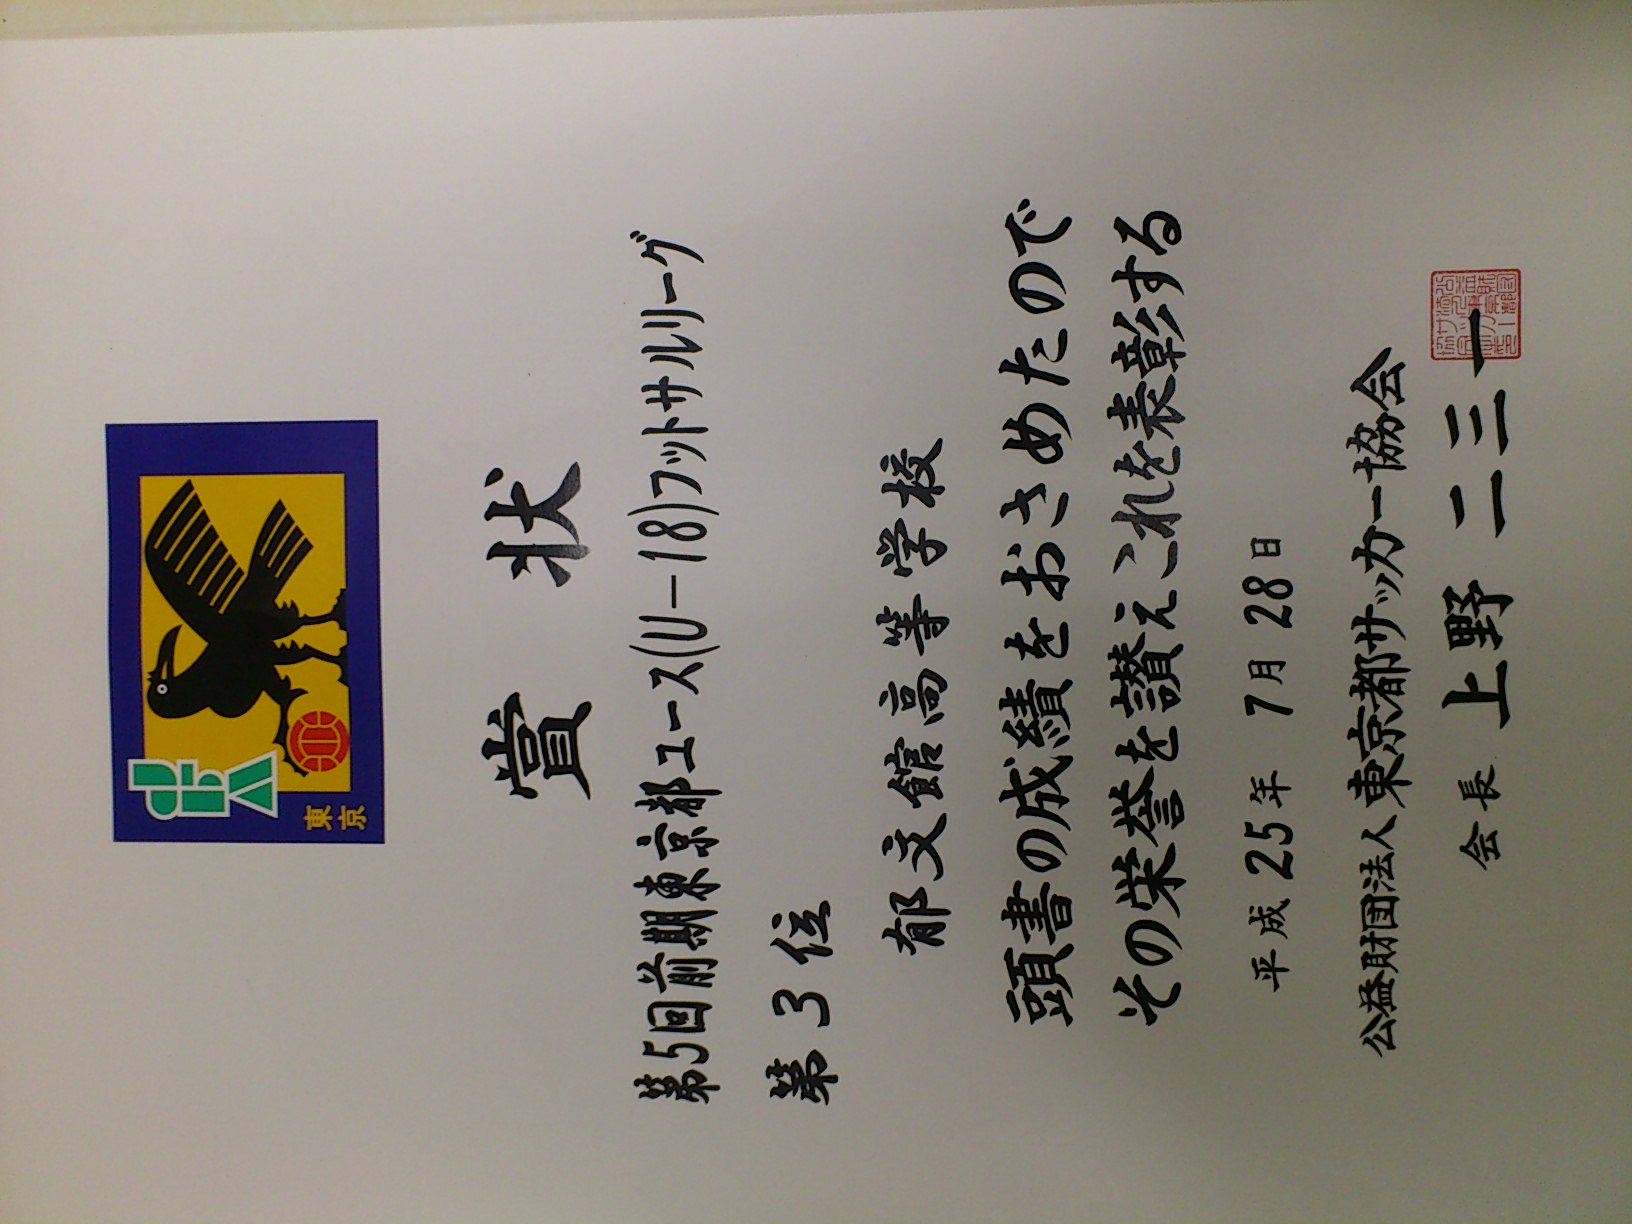 東京
賞状
第5回前期東京都ユース(U-18)フットサルリーグ
第3位
郁文館高等学校
頭書の成績をおさめたので
その栄誉を讃えこれを表彰する
平成25年7月28日
公益財団法人東京都サッカー協会
会長 上野 二三一